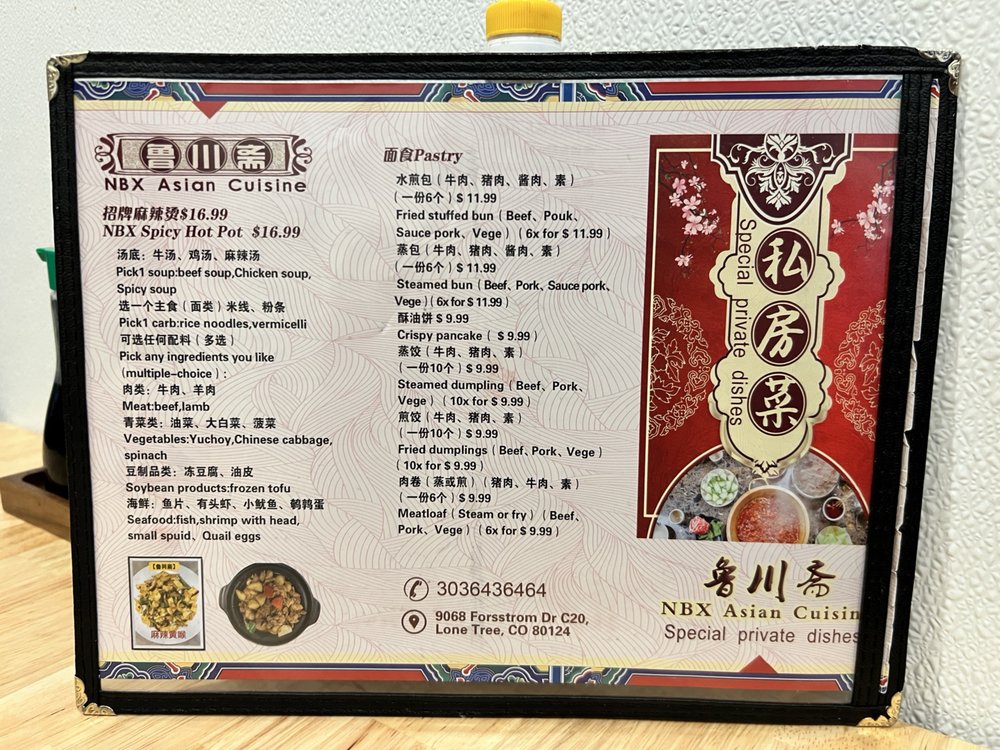 魯川斋
NBX Asian Cuisine
招牌麻辣烫$16.99
NBX Spicy Hot Pot $16.99
汤底：牛汤、鸡汤、麻辣汤
Pick1 soup:beef soup,Chicken soup,
Spicy soup
选一个主食（面类）米线、粉条
Pick1 carb:rice noodles,vermicelli
可选任何配料（多选）
Pick any ingredients you like
(multiple-choice）:
肉类：牛肉、羊肉
Meat:beef,lamb
青菜类：油菜、大白菜、菠菜
Vegetables:Yuchoy,Chinese cabbage,
spinach
豆制品类：冻豆腐、油皮
Soybean products:frozen tofu
海鲜：鱼片、有头虾、小鱿鱼、鹌鹑蛋
Seafood:fish,shrimp with head,
small spuid、Quail eggs
【鲁川斋】
麻辣黄喉
面食Pastry
水煎包（牛肉、猪肉、酱肉、素）
（一份6个）$ 11.99
Fried stuffed bun（Beef、Pouk、
Sauce pork、Vege）（6x for $ 11.99）
蒸包（牛肉、猪肉、酱肉、素）
（一份6个）$ 11.99
Steamed bun（Beef、Pork、Sauce pork、
Vege）（6x for $ 11.99）
酥油饼 $ 9.99
Crispy pancake（ $ 9.99）
蒸饺（牛肉、猪肉、素）
（一份10个）$ 9.99
Steamed dumpling（Beef、Pork、
Vege）（10x for $ 9.99）
煎饺（牛肉、猪肉、素）
（一份10个）$ 9.99
Fried dumplings（Beef、Pork、Vege）
（10x for $ 9.99）
肉卷（蒸或煎）（猪肉、牛肉、素）
（一份6个）$ 9.99
Meatloaf（Steam or fry）（Beef、
Pork、Vege）（6x for $ 9.99）
3036436464
9068 Forsstrom Dr C20,
Lone Tree, CO 80124
私房菜
Special private dishes
魯川斋
NBX Asian Cuisin
Special private dishes